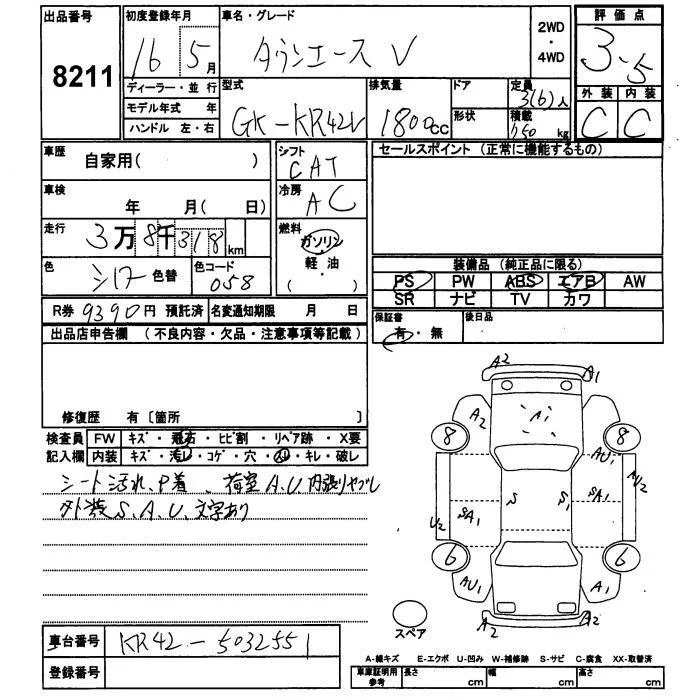 出品番号 初度登録年月 車名・グレード 2WD ・ 4WD 評価点
8211 16 5月 タウンエース V 3.5
ディーラー・並行 型式 排気量 ドア 定員 3(6)人 外装 内装
モデル年式 年 GK-KR42V 1800cc 形状 積載 750kg C C
ハンドル 左・右
車歴 自家用( ) シフト CAT セールスポイント (正常に機能するもの)
車検 年 月( 日) 冷房 AC
走行 3万8千318km 燃料 ガソリン・軽油・
色 シロ 色替 色コード 058 装備品 (純正品に限る)
PS PW ABS エアB AW
SR ナビ TV カワ
R券 9390円 預託済 名変通知期限 月 日 保証書 有・無 後日品
出品店申告欄 (不良内容・欠品・注意事項等記載)
修復歴 有〔箇所
検査員 FW キズ・飛石・ヒビ割・リペア跡・X要
記入欄 内装 キズ・汚レ・コゲ・穴・ ・キレ・破レ
シート汚れ、P着、荷室A.U.内張りヤブレ
外装S.A.U.文字あり
A2 A1
A2 A1
8 8
AU1 AU2
S S1 SA1
U2 SA1
6 6
AU1 A1
A2 A2
スペア
車台番号 KR42-5032551
登録番号
A-線キズ E-エクボ U-凹み W-補修跡 S-サビ C-腐食 XX-取替済
車庫証明用参考 長さ cm 幅 cm 高さ cm